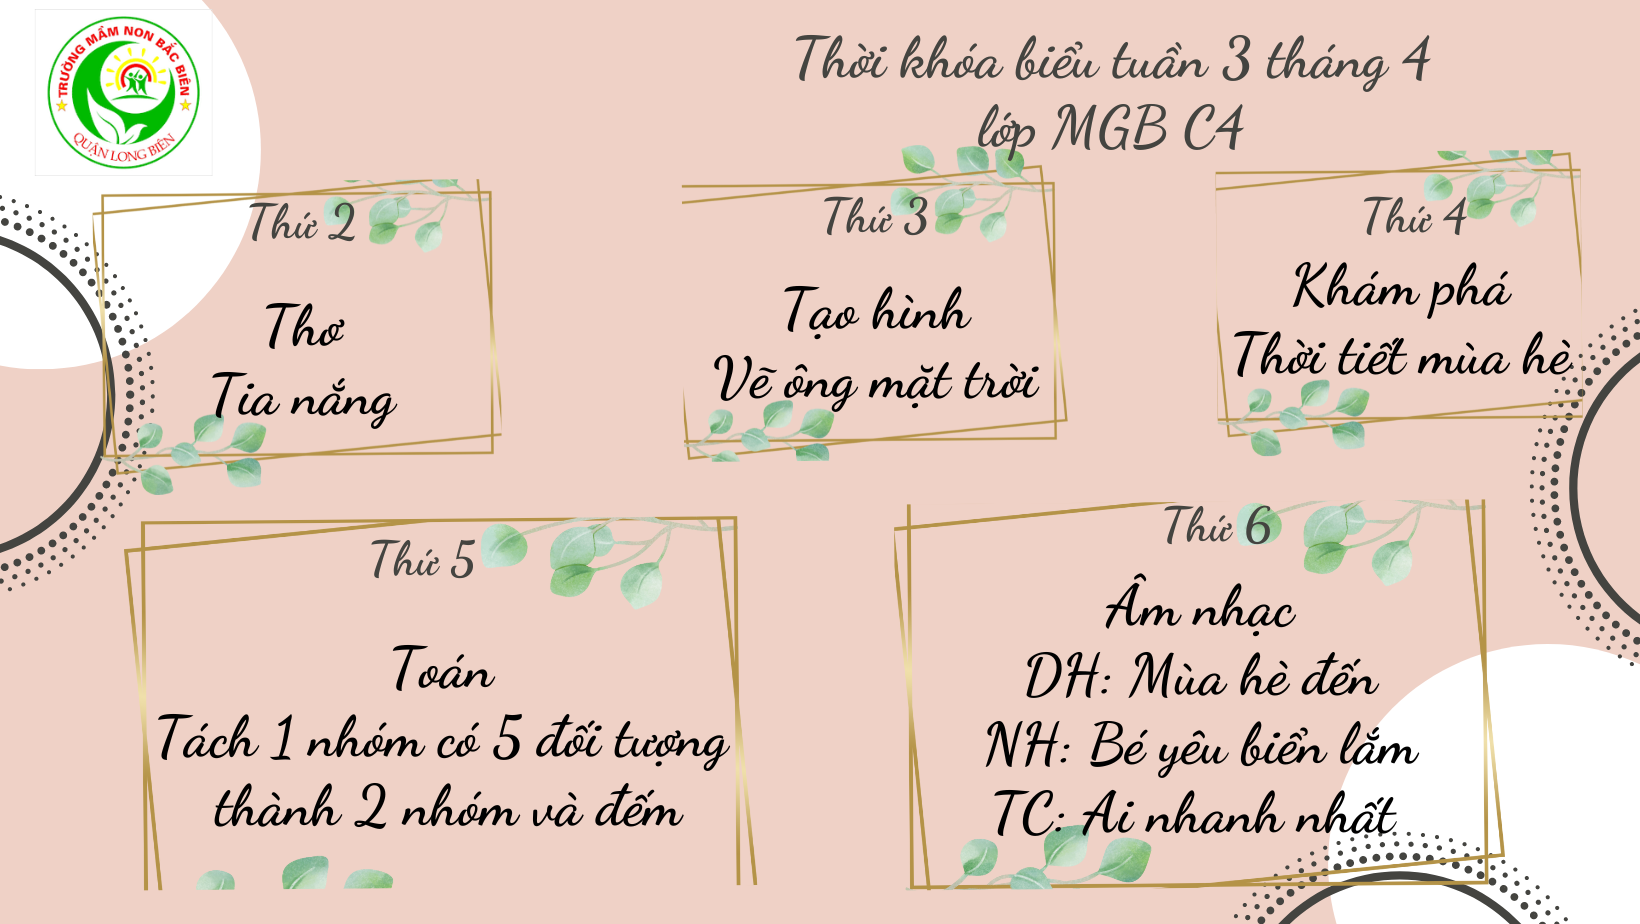 TRƯỜNG MẦM NON BẮC BIÊN
QUẬN LONG BIÊN
Thời khóa biểu tuần 3 tháng 4
lớp MGB C4
Thứ 2
Thơ
Tia nắng
Thứ 3
Tạo hình
Vẽ ông mặt trời
Thứ 4
Khám phá
Thời tiết mùa hè
Thứ 5
Toán
Tách 1 nhóm có 5 đối tượng
thành 2 nhóm và đếm
Thứ 6
Âm nhạc
DH: Mùa hè đến
NH: Bé yêu biển lắm
TC: Ai nhanh nhất